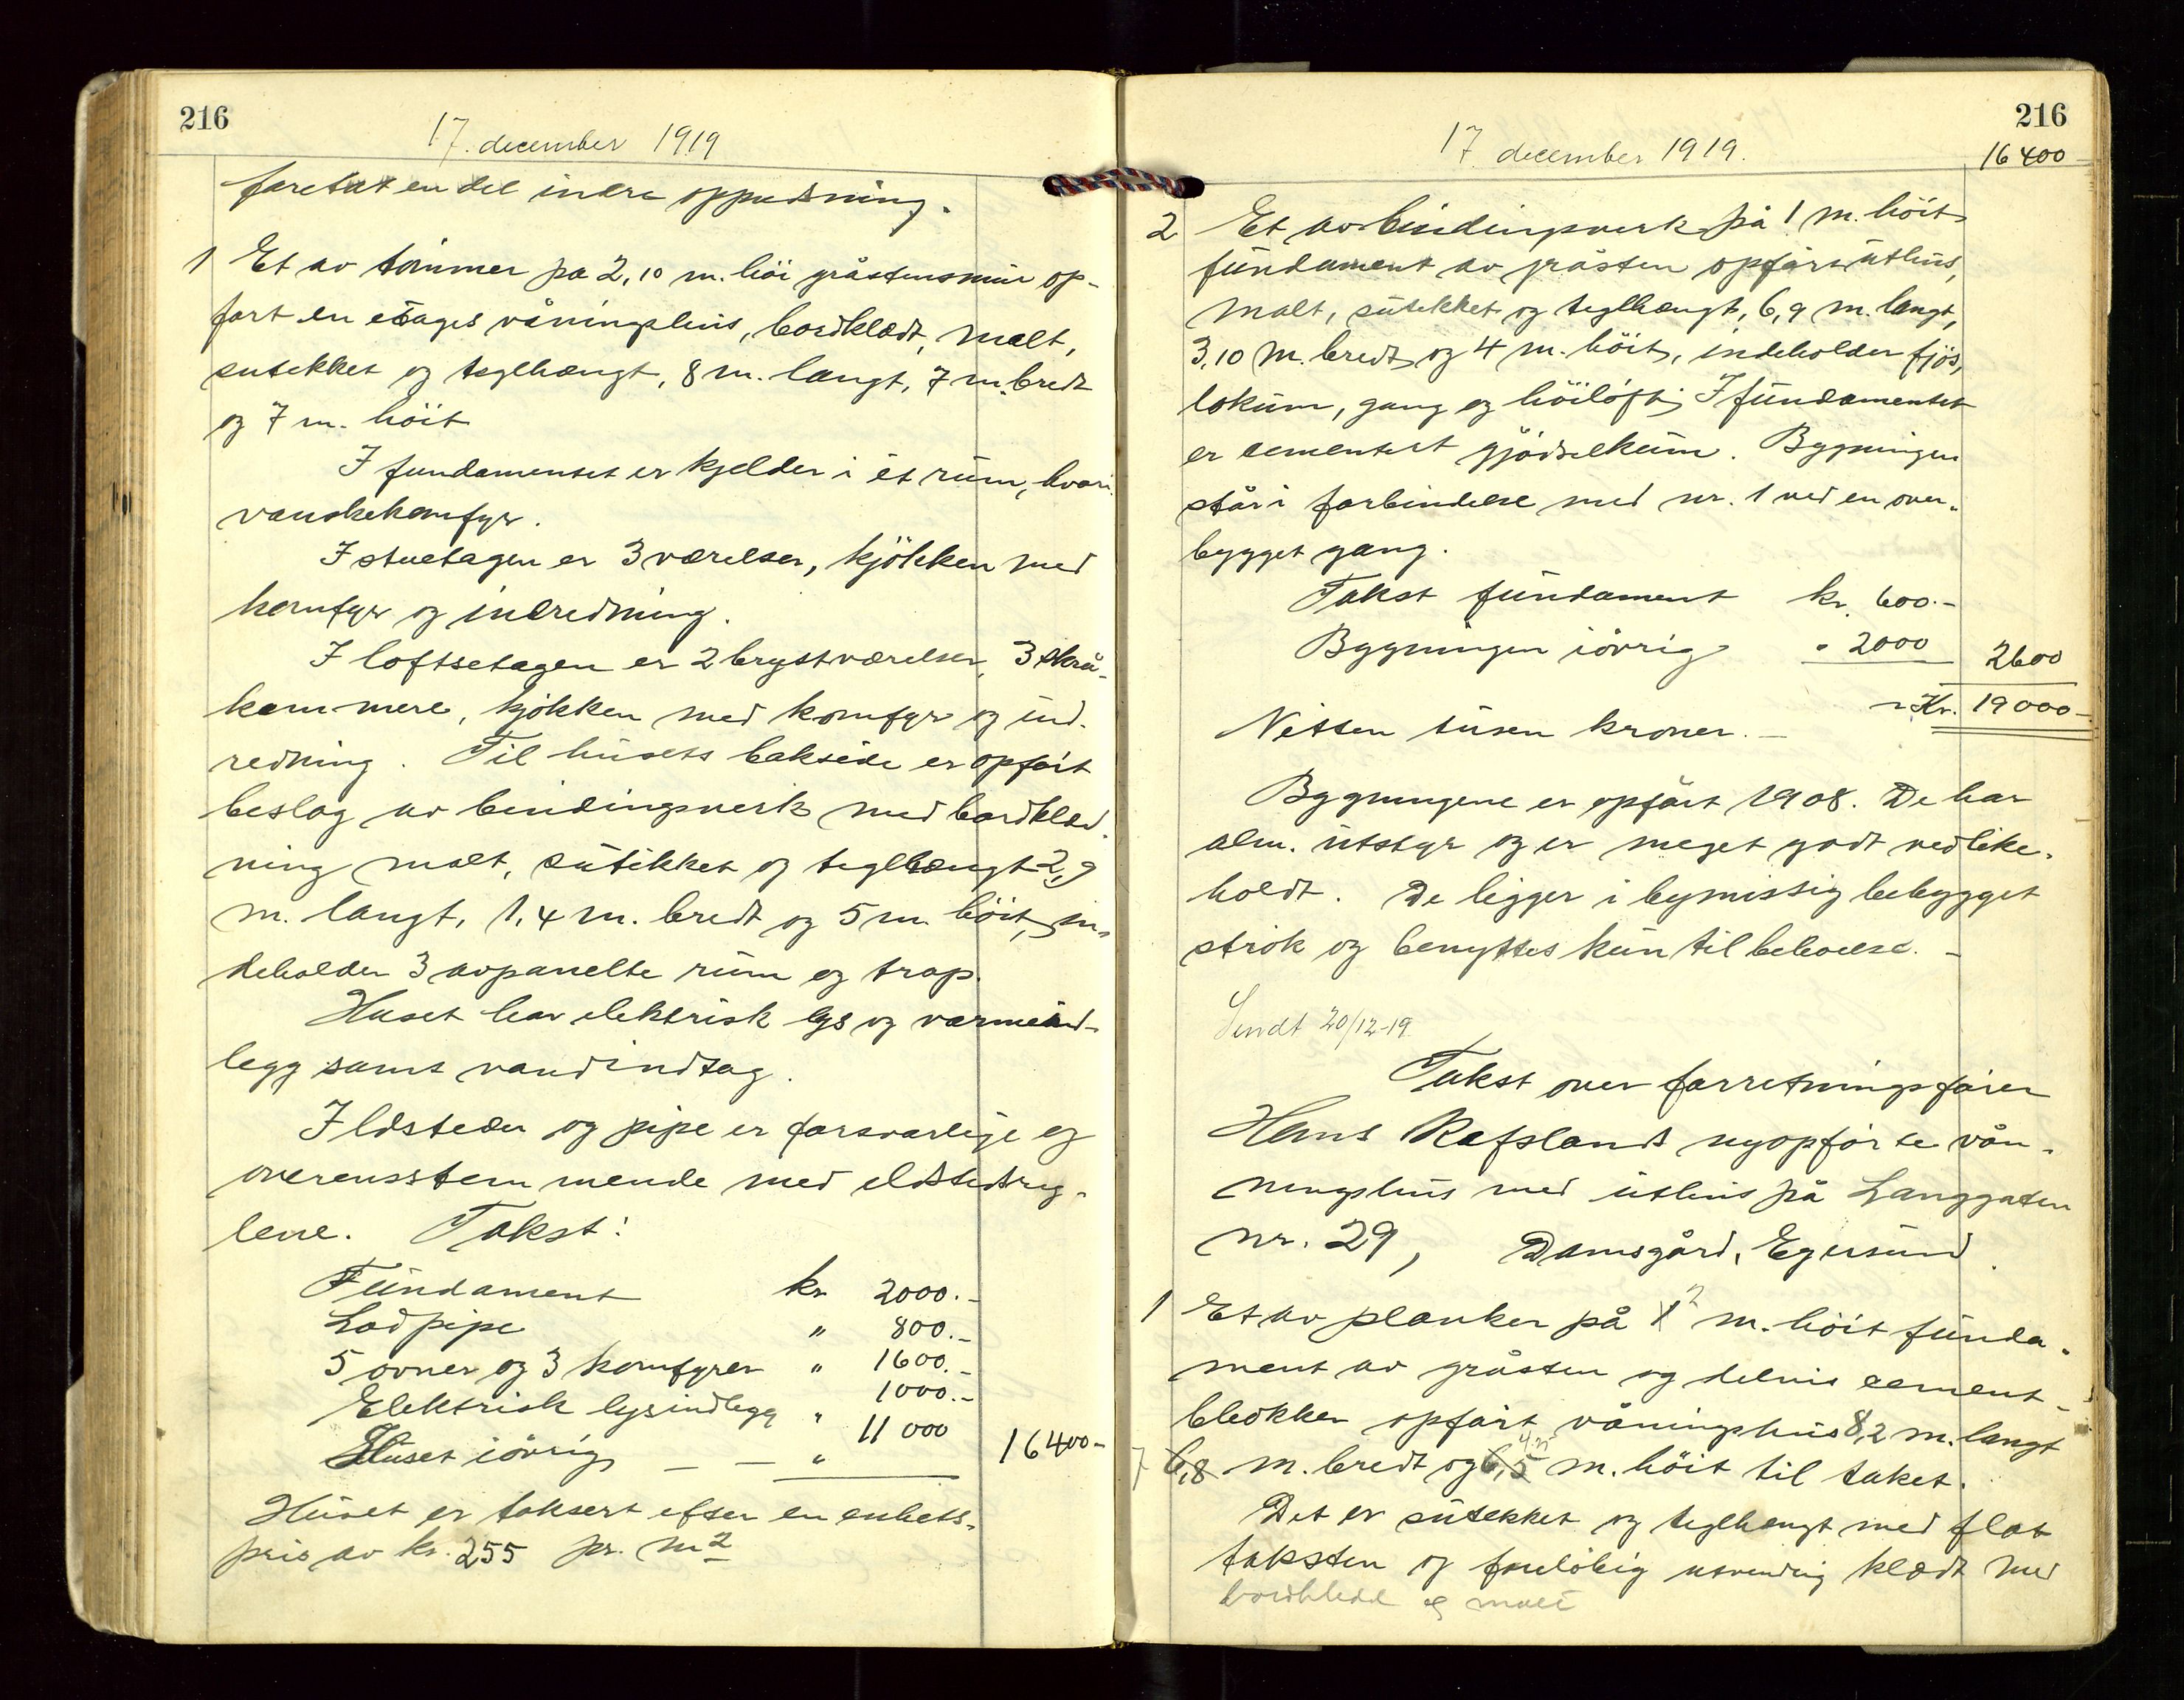 216
17. december 1919
foretat en del indre oppudsning.
1 Et av tömmer på 2,10 m. höi gråstensmur op-
ført en etages våningshus, bordklædt, malt,
sutekket og teglhængt, 8 m. langt, 7 m. bredt
og 7 m. höit
I fundamentet er kjelder i ét rum, hvori
vaskekomfyr.
I stuetagen er 3 værelser, kjökken med
komfyr og indredning.
I loftsetagen er 2 brystværelser, 3 skrå-
kammere, kjökken med komfyr og ind-
redning. Til husets bakside er opført
beslag av bindingsverk med bordklæd-
ning malt, sutekket og teglhængt 2,9
m. langt, 1,4 m. bredt og 5 m. höit, in-
deholder 3 avpanelte rum og trap.
Huset har elektrisk lys og varmeind-
legg samt vandindtag.
Ildsteder og pipe er forsvarlige og
overensstemmende med ildstedsreg-
lene. Takst:
Fundament kr 2000.-
Lodpipe " 800.-
5 ovner og 3 komfyrer " 1600.-
Elektrisk lysindlegg " 1000.-
Huset iövrig — — " 11 000 16400-
Huset er taksert efter en enhets-
pris av kr. 255 pr. m2
216
17. december 1919.
16400
2 Et av bindingsverk på 1 m. höit
fundament av gråsten opført uthus,
malt, sutekket og teglhængt, 6,9 m. langt,
3,10 m. bredt og 4 m. höit, indeholder fjös,
lokum, gang og höiloft; I fundamentet
er cementert gjödselkum. Bygningen
står i forbindelse med nr. 1 ved en over-
bygget gang.
Takst fundament kr. 600.-
Bygningen iövrig " 2000 2600
Kr. 19000-
Nitten tusen kroner.—
Bygningene er opført 1908. De har
alm. utstyr og er meget godt vedlike-
holdt. De ligger i bymessig bebygget
strök og benyttes kun til beboelse. -
Sendt 20/12-19
Takst over forretningsfører
Hans Refslands nyopførte vån-
ningshus med uthus på Langgaten
nr. 29, Damsgård, Egersund.
1 Et av planker på 1 2 m. höit funda-
ment av gråsten og delvis cement-
blokker opført våningshus 8,2 m. langt
7 6,8 m. bredt og 6,5 m. höit til taket.
Det er sutekket og teglhængt med flat
taksten og foreløbig utvendig klædt med
bordklædd og malt